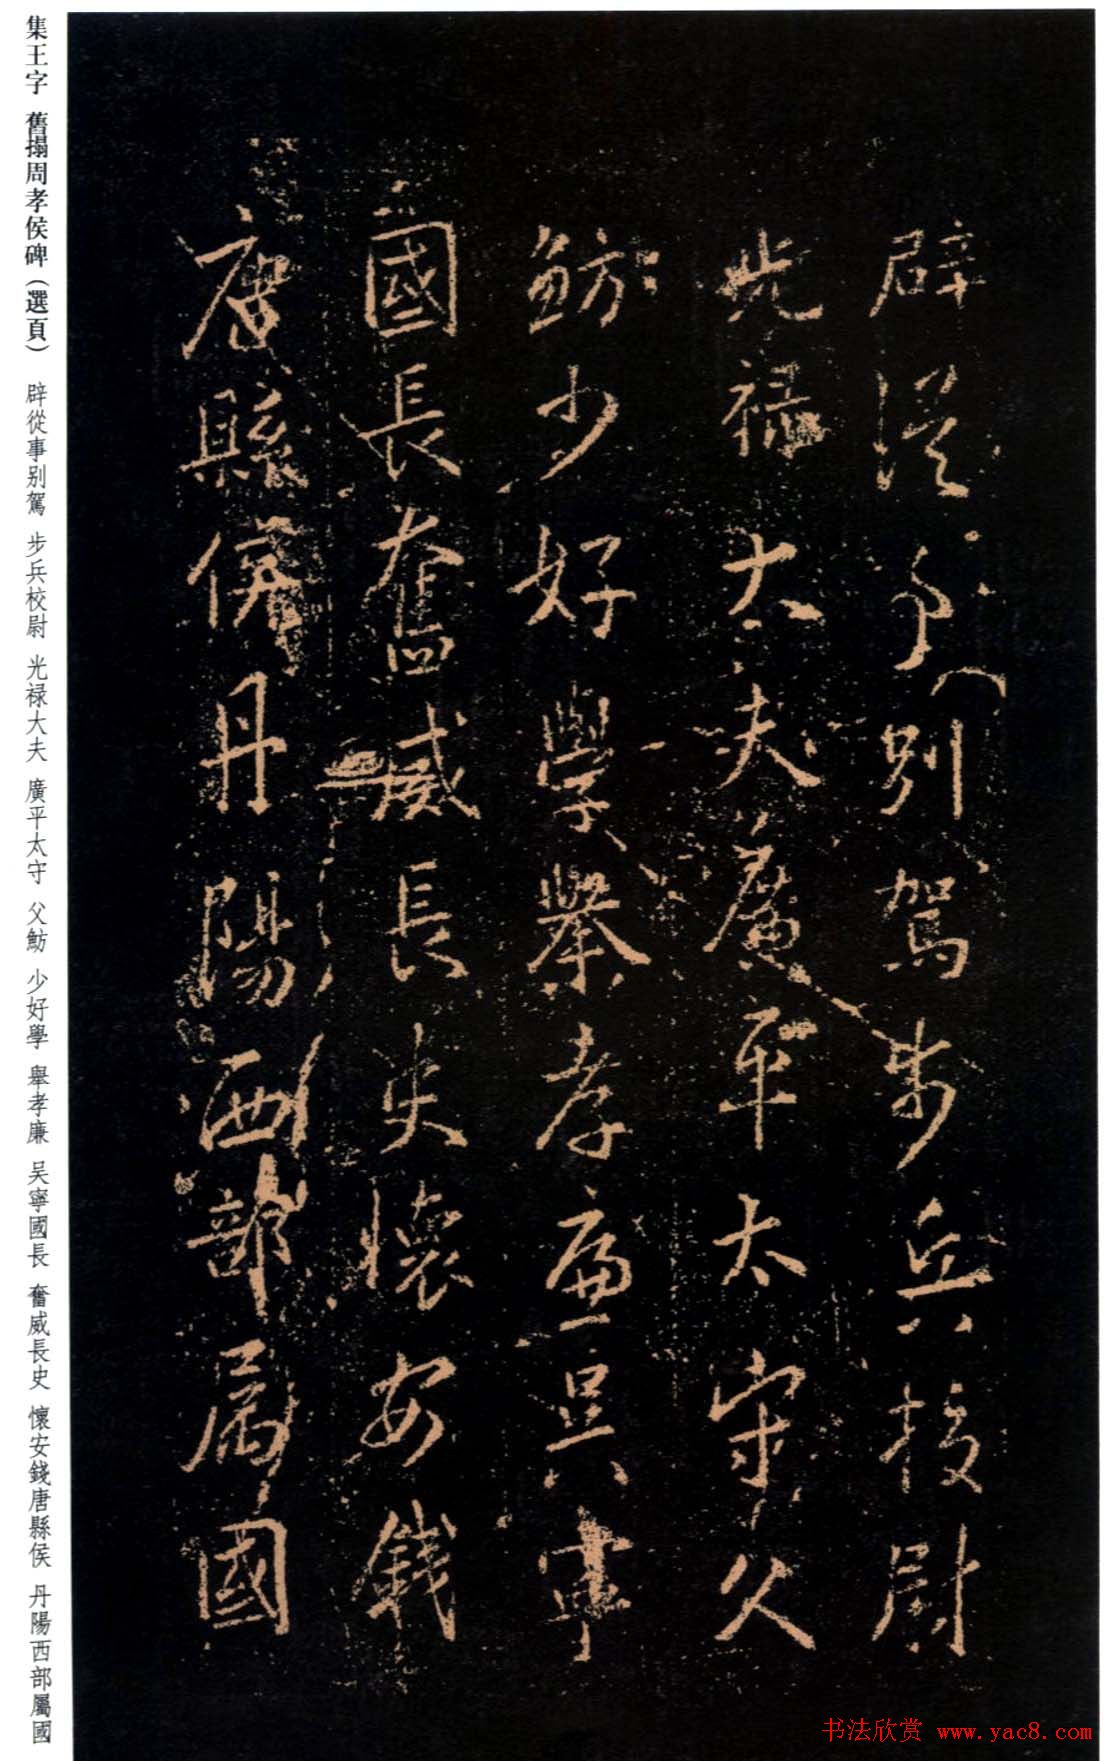 辟從事別駕步兵校尉
光禄大夫廣平太守父
魴少好學舉孝廉吴寧
國長奮威長史懷安錢
唐縣侯丹陽西部屬國
集王字 舊搨周孝侯碑（選頁） 辟從事别駕 步兵校尉 光禄大夫 廣平太守 父魴 少好學 舉孝廉 吴寧國長 奮威長史 懷安錢唐縣侯 丹陽西部屬國
书法欣赏 www.yac8.com